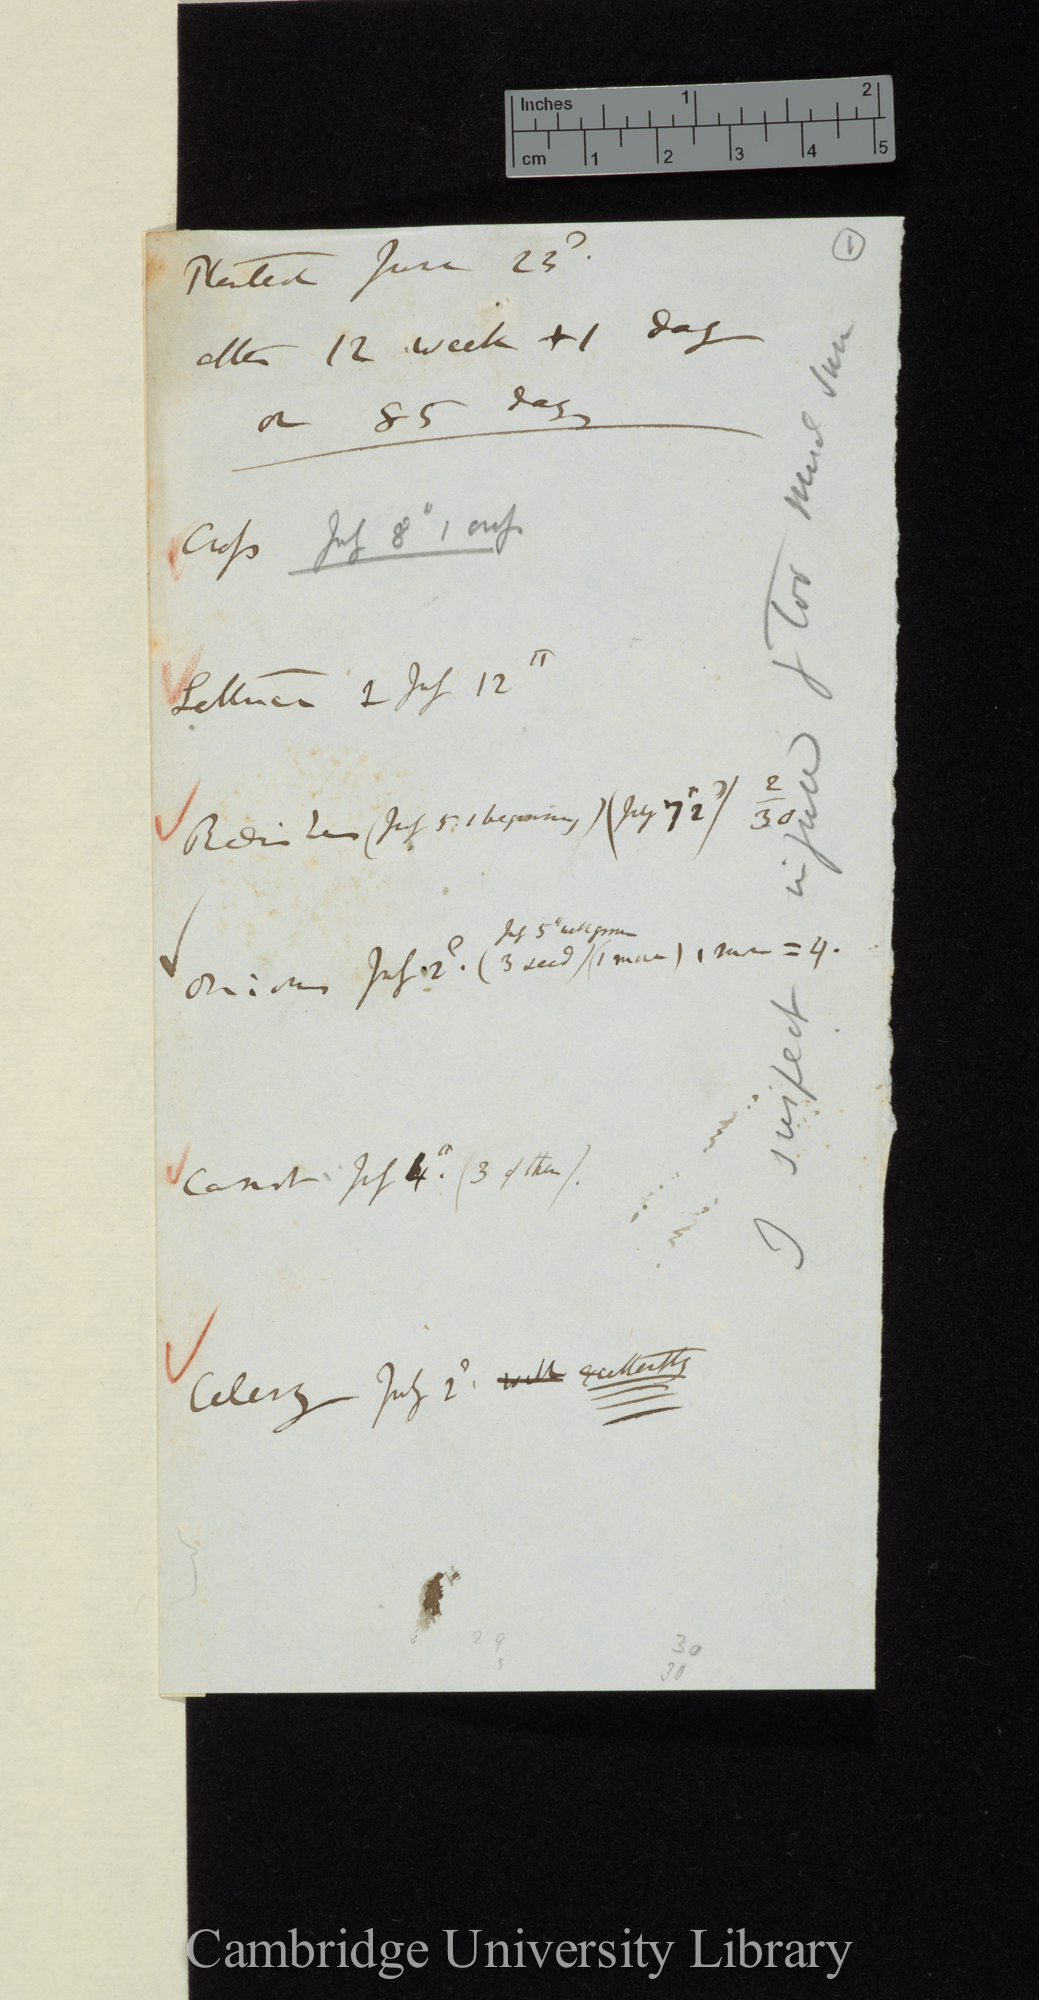 Inches 1 2
cm 1 2 3 4 5
1
Planted June 23d.
after 12 week +1 day
or 85 days
Cress July 8th 1 cress
Lettuce 1 July 12th
Radishes (July 5. 1 beginning) (July 7th 2) 2/30
July 5th
Onions July 2d. (3 seed) (1 more) 1 more = 4.
Carrot July 4th. (3 of them).
Celery July 2d. well excellently
I suspect injured f Too much sun
29
5
30
30
Cambridge University Library